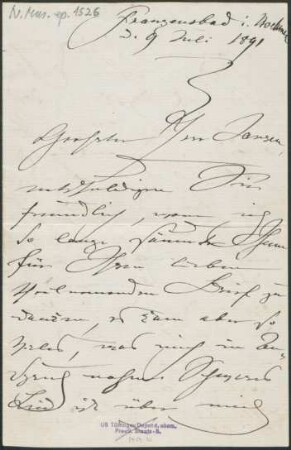 N. Mus. ep. 1526
Franzensbad i. Böhmen
d. 9 Juli 1891
Geehrter Herr Jansen,
entschuldigen Sie
freundlich, wenn ich
so lange säumte Ihnen
für Ihren lieben
theilnehmenden Brief zu
danken, es kam aber so
vieles, was mich in An-
spruch nahm. Schweres
Leid ist über mich
UB Tübingen Depot d. ehem.
Preuß. Staats-B.